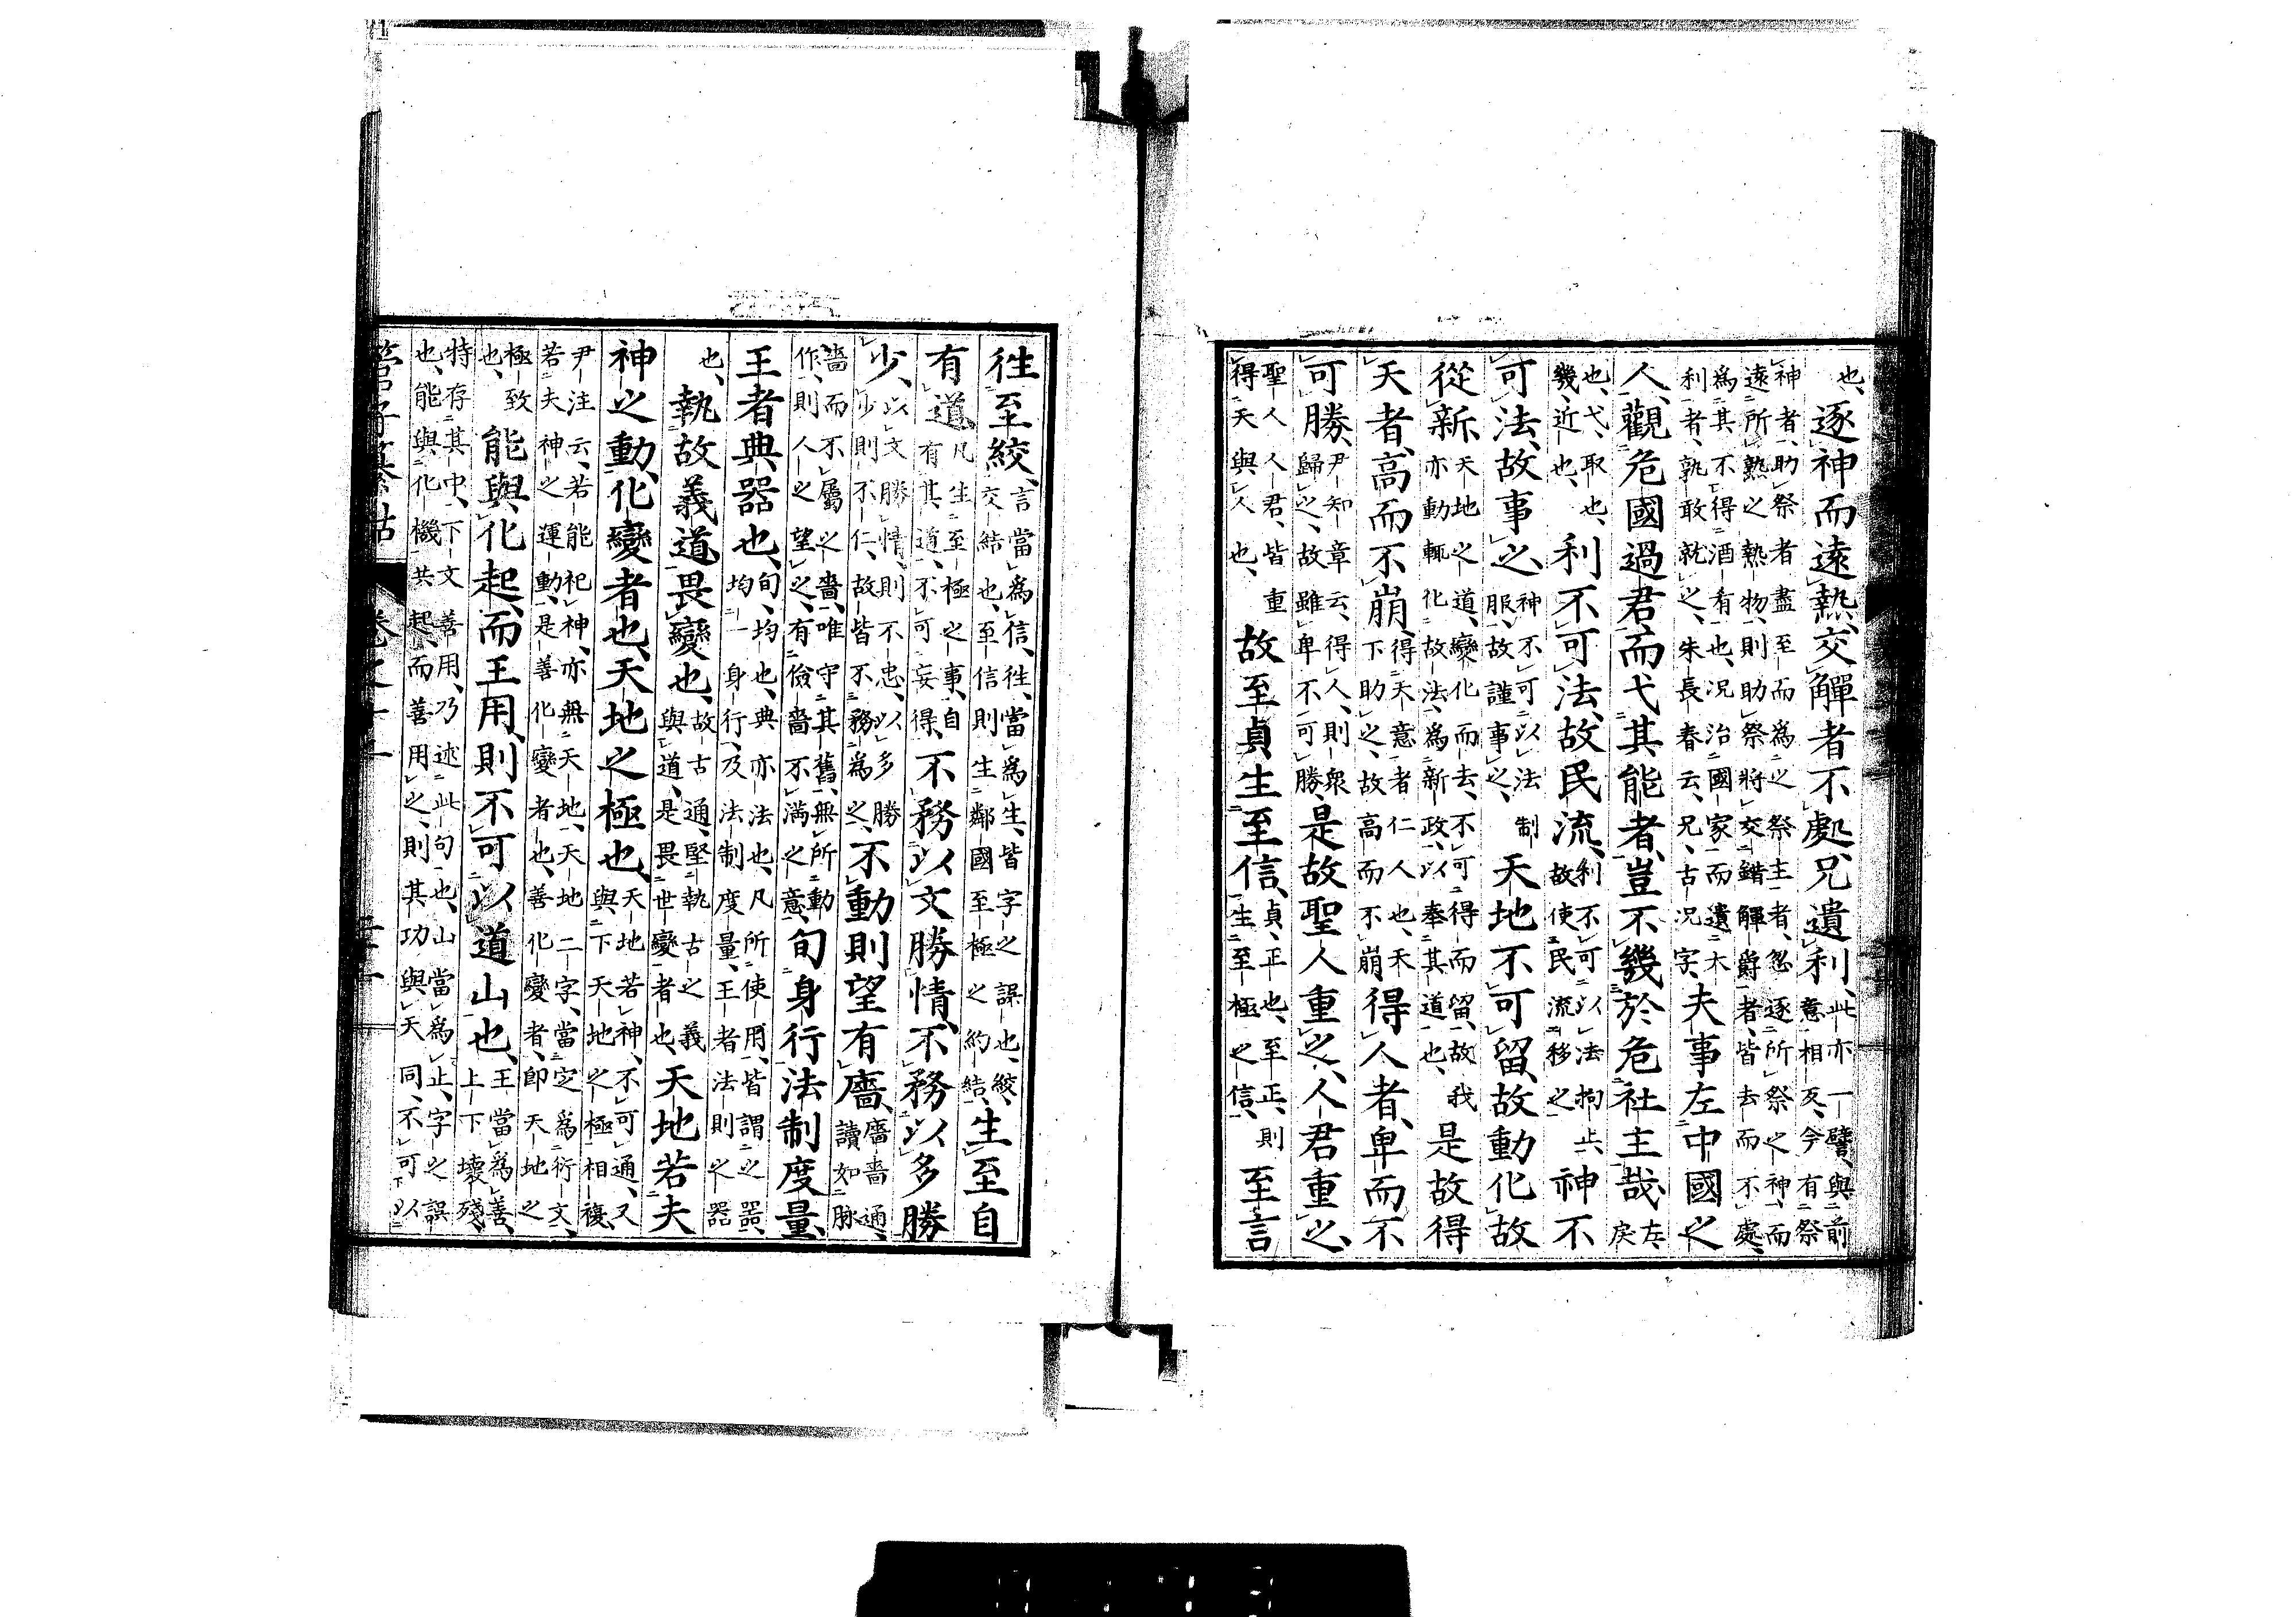 也、逐神而遠熱、交觶者不處、兄遺利、此亦一譬、與前意相反、今有祭
神者、助祭者盡至而爲之祭主者、忽逐所祭之神、而遠所熟之熱物、則助祭將交錯觶爵者、皆去而不處、
爲其不得酒有也、況治國家而遺大利者、孰敢就之、朱長春云、兄、古況字、夫事左中國之
人、觀危國過君、而弋其能者、豈不幾於危社主哉、左、戾
也、弋、取也、幾、近也、利不可法、故民流、利不可以法拘止、故使民流移之、神不
可法、故事之、神不可以法制服、故謹事之、天地不可留、故動化、故
從新、天地之道、變化而去、不可得而留、故我亦動輒化故法、爲新政、以奉其道也、是故得
天者、高而不崩、得天意者仁人也、天下助之、故高而不崩、得人者、卑而不
可勝、尹知章云、得人、則衆歸之、故雖卑不可勝、是故聖人重之、人君重之、
聖人人君、皆重得天與人也、故至貞生至信、貞、正也、至正、則生至極之信、至言
往至絞、言當爲信、往當爲生、皆字之誤也、絞、交結也、至信則生鄰國至極之約結、生至自
有道、凡生至極之事、自有其道、不可妄得、不務以文勝情、不務以多勝
少、以文勝情、則不忠、以多勝少則不仁、故皆不務爲之、不動則望有廧、廧嗇通、讀如脉
嗇而不屬之嗇、唯守其舊、無所動作、則人之望之、有儉嗇不滿之意、旬身行法制度量、
王者典器也、旬、均也、典亦法也、凡所使用、皆謂之器、均一身行、及法制度量、王者法則之器
也、執故義道、畏變也、故古通、堅執古之義與道、是畏世變者也、天地若夫
神之動、化變者也、天地之極也、天地若神、不可通、又與下天地之極相複、
尹注云、若能祀神、亦無天地、天地二字、當定爲衍文、若夫神之運動、是善化變者也、善化變者、卽天地之
極致也、能與化起、而王用、則不可以道山也、王當爲善、上下壞殘、
特存其中、下文善用、乃述此句也、山當爲止、字之誤也、能與化機共起、而善用之、則其功與天同、不可以
管子纂詁　卷之十二